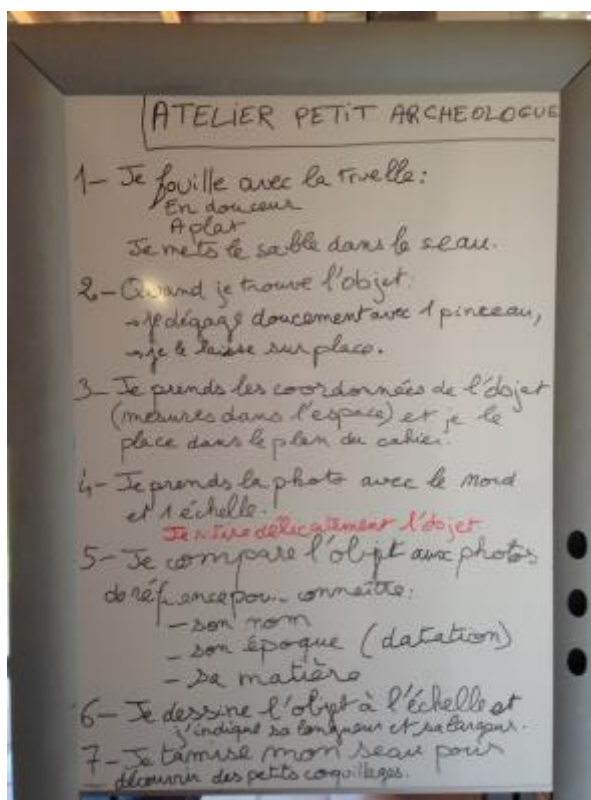 ATELIER PETIT ARCHEOLOGUE
1- Je fouille avec la truelle:
En douceur
A plat
Je mets le sable dans le seau.
2- Quand je trouve l'objet:
→ je dégage doucement avec 1 pinceau,
→ je le laisse sur place.
3- Je prends les coordonnées de l'objet
(mesures dans l'espace) et je le
place dans le plan du cahier.
4- Je prends la photo avec le nord
et l'échelle.
Je retire délicatement l'objet
5- Je compare l'objet aux photos
de référence pour connaître:
- son nom
- son époque (datation)
- sa matière
6- Je dessine l'objet à l'échelle et
j'indique sa longueur et sa largeur.
7- Je tamise mon seau pour
découvrir des petits coquillages.